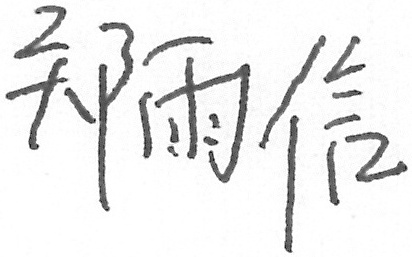 郑雨信